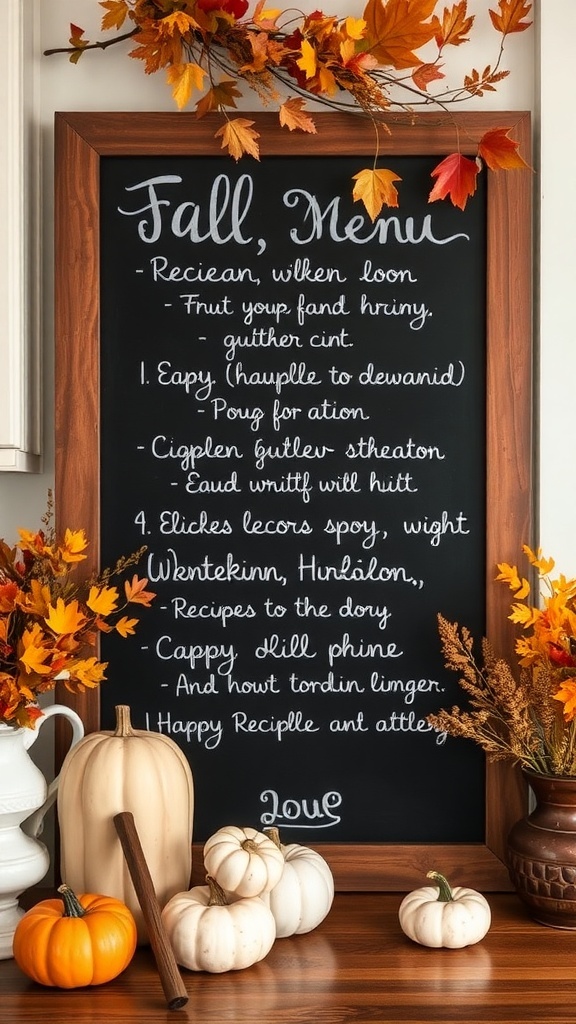 Fall, Menu
- Reciean, wilken loon
- Fnut youp fand hrciny.
- gutther cint.
1. Eapy. (hauplle to dewanid)
- Poug for ation
- Cigplen gutlev stheaton
- Eaud writtf will hitt.
4. Elickes lecors spoy, wight
Wkentekinn, Hinlalon.,
- Recipes to the dory
- Cappy dlill phine
- And howt tordin limger.
Happy Reciplle ant attley